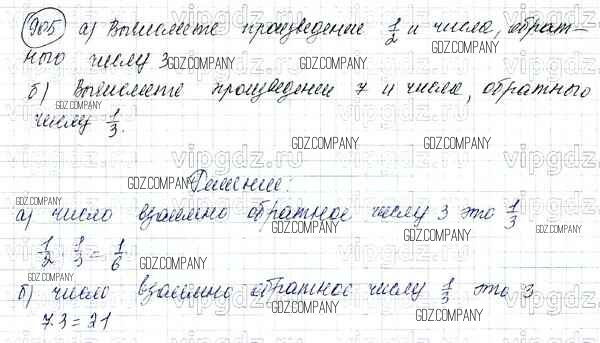 905 а) Вычислите произведение 1/2 и числа, обрат-
ного числу 3
б) Вычислите произведении 7 и числа, обратного
числу 1/3.
Решение:
а) число взаимно обратное числу 3 это 1/3
1/2 · 1/3 = 1/6
б) число взаимно обратное числу 1/3 это 3
7·3=21
vipgdz.ru
GDZ.COMPANY